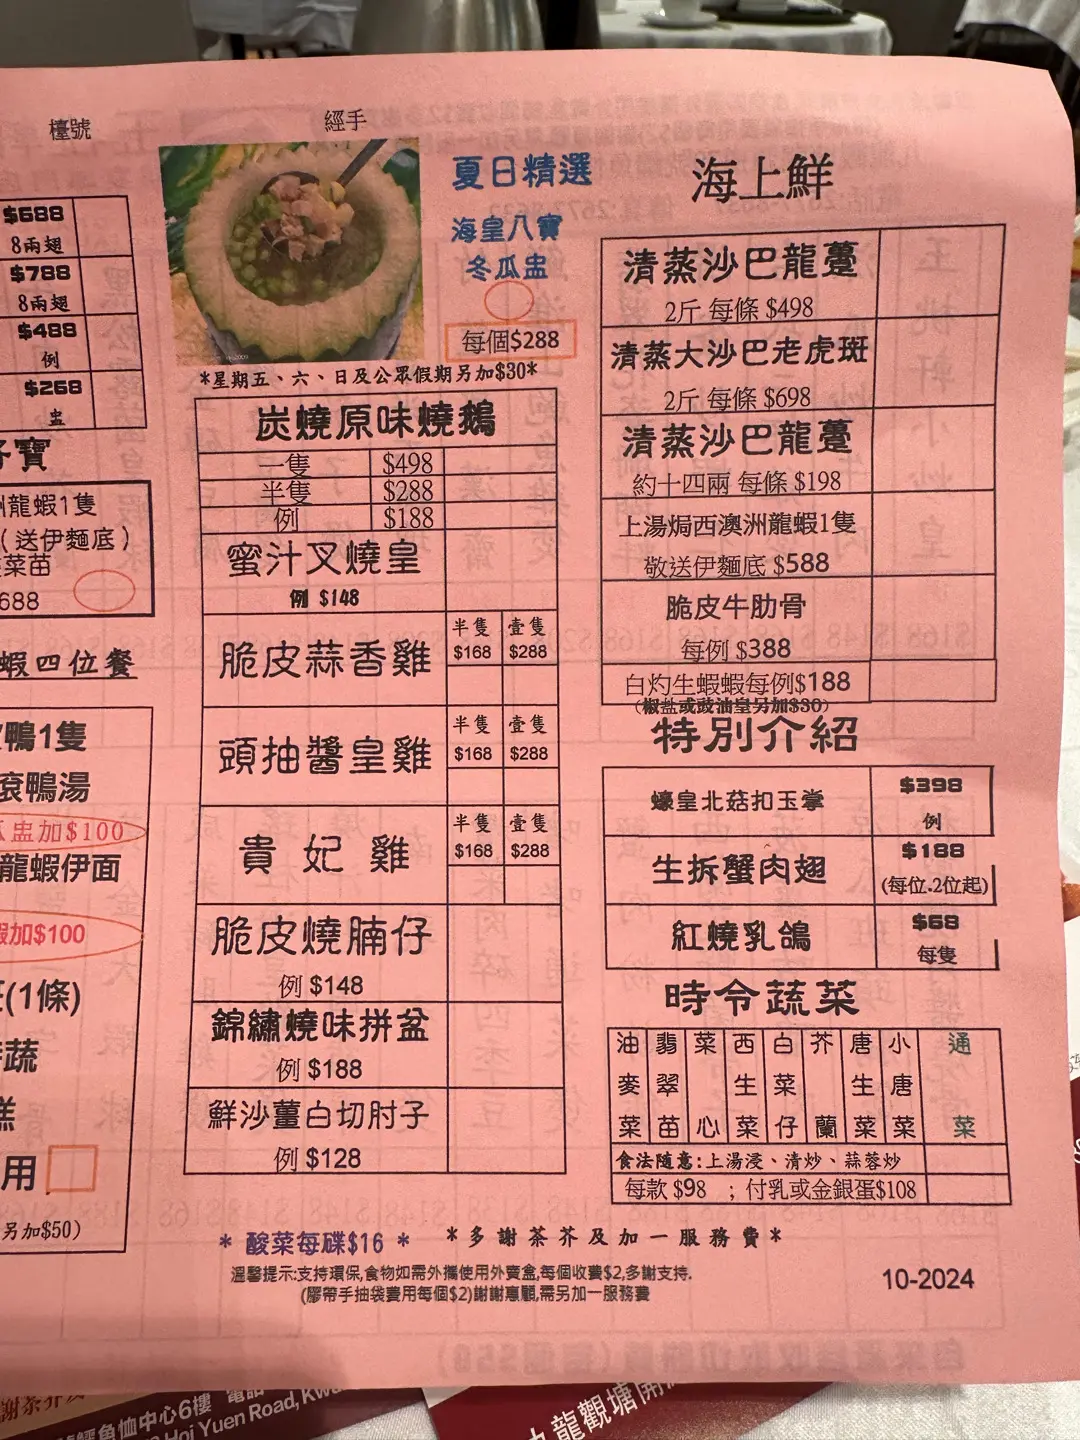 檯號
經手
$688
8兩翅
$788
8兩翅
$488
例
$268
盅
寶
龍蝦1隻
(送伊麵底)
菜苗
688
蝦四位餐
鴨1隻
滾鴨湯
盅加$100
龍蝦伊面
加$100
(1條)
蔬
糕
用
另加$50)
夏日精選
海皇八寶
冬瓜盅
每個$288
*星期五、六、日及公眾假期另加$30*
炭燒原味燒鵝
一隻 $498
半隻 $288
例 $188
蜜汁叉燒皇
例 $148
脆皮蒜香雞
半隻 壹隻
$168 $288
頭抽醬皇雞
半隻 壹隻
$168 $288
貴妃雞
半隻 壹隻
$168 $288
脆皮燒腩仔
例 $148
錦繡燒味拼盆
例 $188
鮮沙薑白切肘子
例 $128
海上鮮
清蒸沙巴龍躉
2斤 每條 $498
清蒸大沙巴老虎斑
2斤 每條 $698
清蒸沙巴龍躉
約十四兩 每條 $198
上湯焗西澳洲龍蝦1隻
敬送伊麵底 $588
脆皮牛肋骨
每例 $388
白灼生蝦蝦每例$188
(椒盐或豉油皇另加$30)
特別介紹
蠔皇北菇扣玉掌
$398
例
生拆蟹肉翅
$188
(每位.2位起)
紅燒乳鴿
$68
每隻
時令蔬菜
油麥菜 翡翠苗 菜心 西生菜 白菜仔 芥蘭 唐生菜 小唐菜 通菜
食法隨意:上湯浸、清炒、蒜蓉炒
每款 $98 ;付乳或金銀蛋$108
* 酸菜每碟$16 *
*多謝茶芥及加一服務費*
溫馨提示:支持環保,食物如需外攜使用外賣盒,每個收費$2,多謝支持.
(膠帶手抽袋費用每個$2)謝謝惠顧,需另加一服務費
10-2024
謝茶芥及
鱷魚恤中心6樓 電話
Hoi Yuen Road, Kw
九龍觀塘開